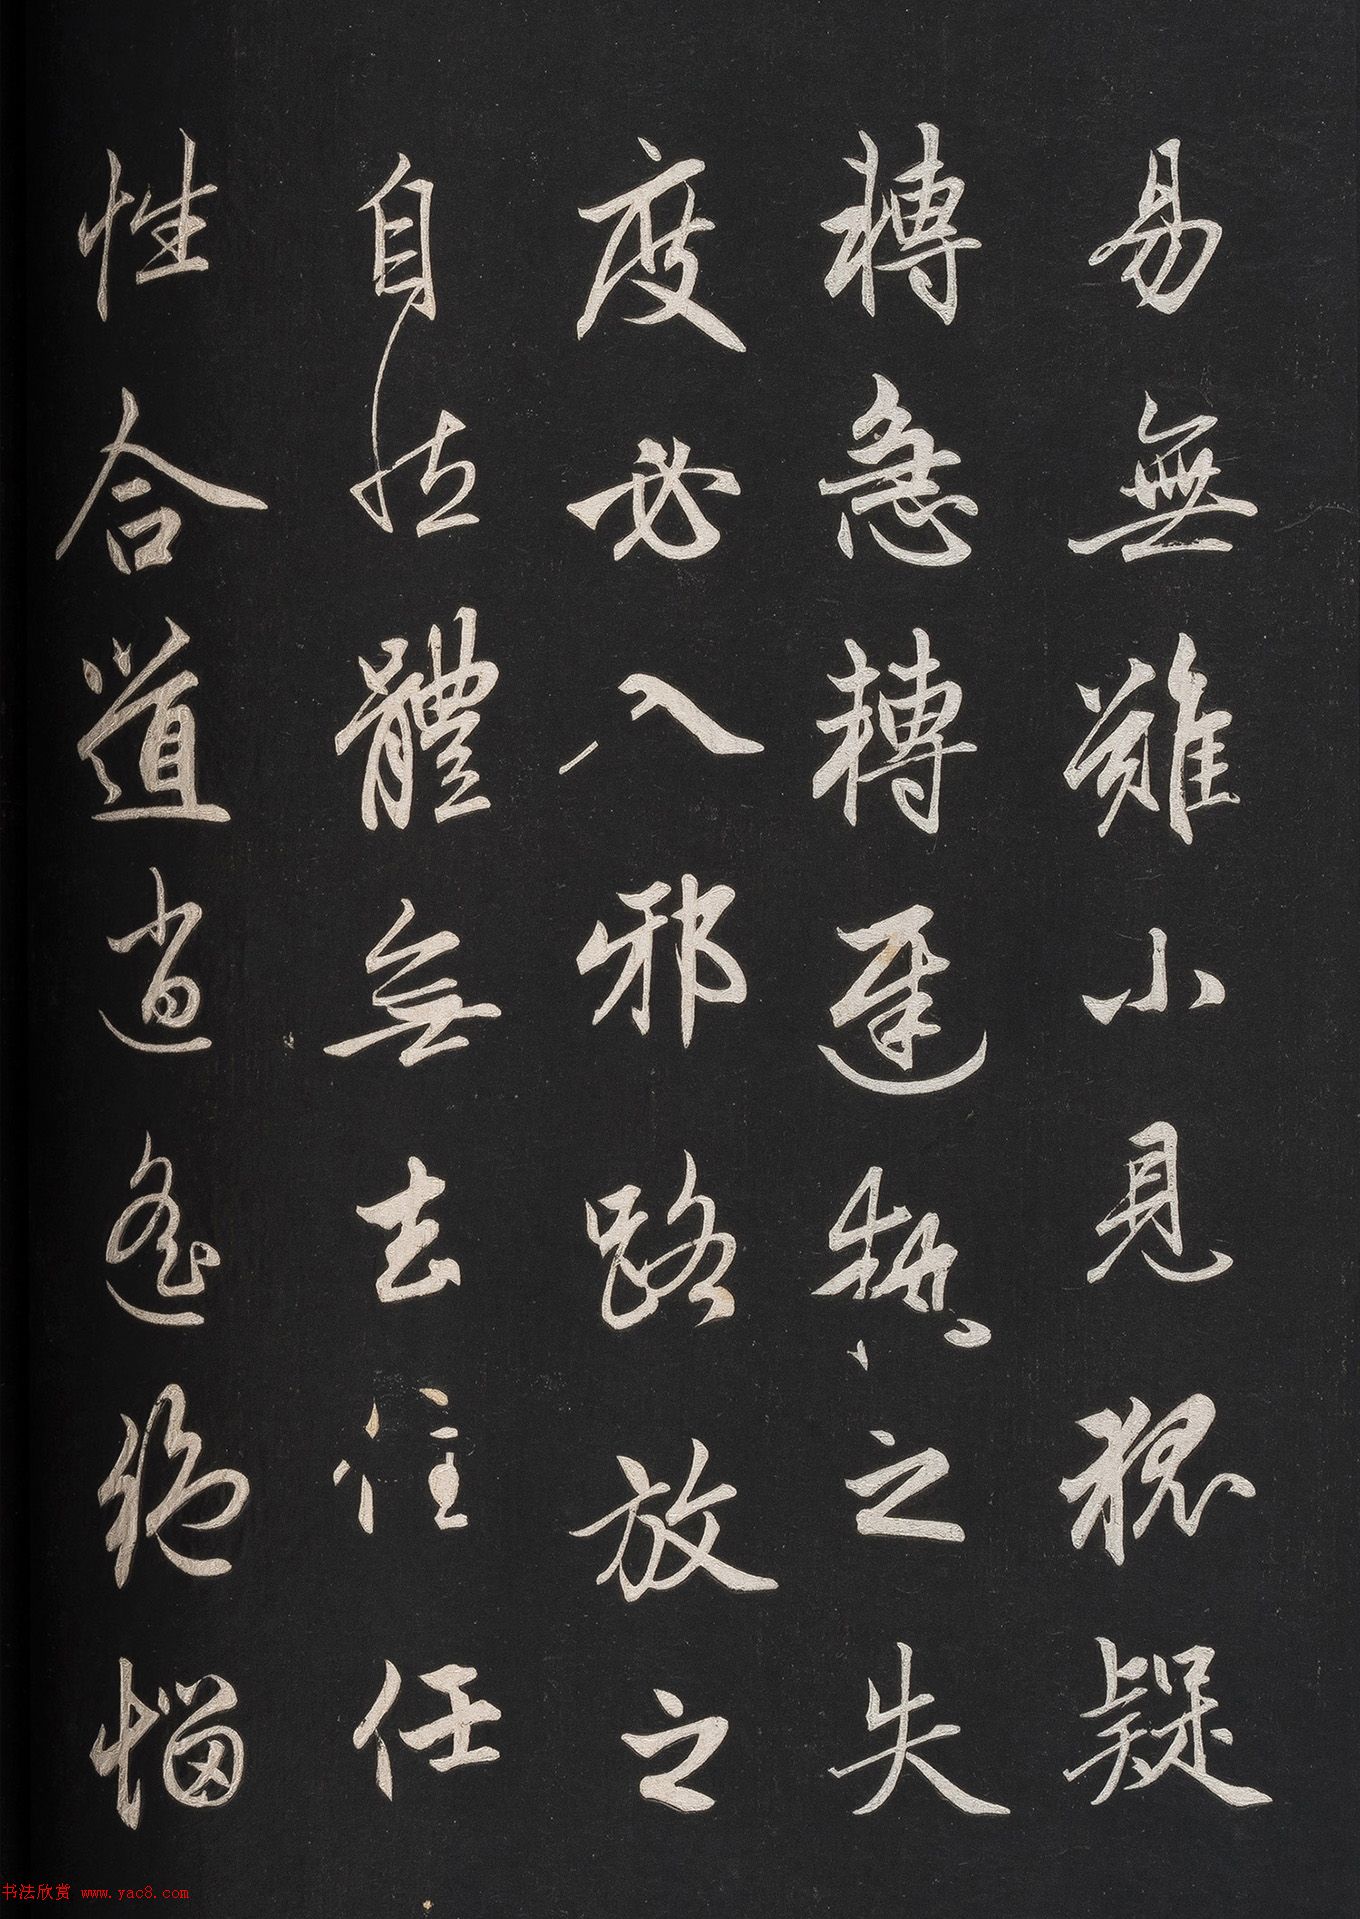 易無難小見狐疑
轉急轉遲執之失
度必入邪路放之
自然體無去住任
性合道逍遙絕惱
书法欣赏 www.yac8.com